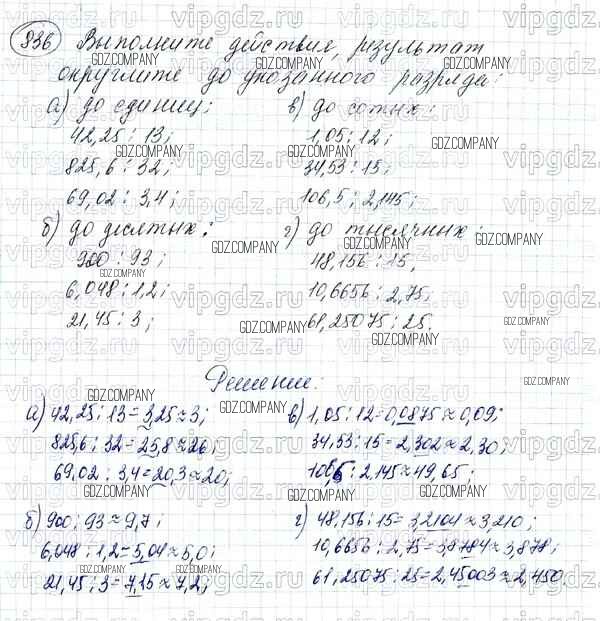 936 Выполните действия, результат
округлите до указанного разряда:
а) до единиц; в) до сотых:
42,25 : 13; 1,05 : 12;
825,6 : 32; 34,53 : 15;
69,02 : 3,4; 106,5 : 2,145;
б) до десятых: г) до тысячных:
900 : 93; 48,156 : 15,
6,048 : 1,2; 10,6656 : 2,75,
21,45 : 3; 61,25075 : 25.
Решение:
а) 42,25 : 13 = 3,25 ≈ 3; в) 1,05 : 12 = 0,0875 ≈ 0,09;
825,6 : 32 = 25,8 ≈ 26; 34,53 : 15 = 2,302 ≈ 2,30;
69,02 : 3,4 = 20,3 ≈ 20; 106,5 : 2,145 ≈ 49,65;
б) 900 : 93 ≈ 9,7; г) 48,156 : 15 = 3,2104 ≈ 3,210;
6,048 : 1,2 = 5,04 ≈ 5,0; 10,6656 : 2,75 = 3,8784 ≈ 3,878;
21,45 : 3 = 7,15 ≈ 7,2; 61,25075 : 25 = 2,45003 ≈ 2,450.
vipgdz.ru
GDZ.COMPANY